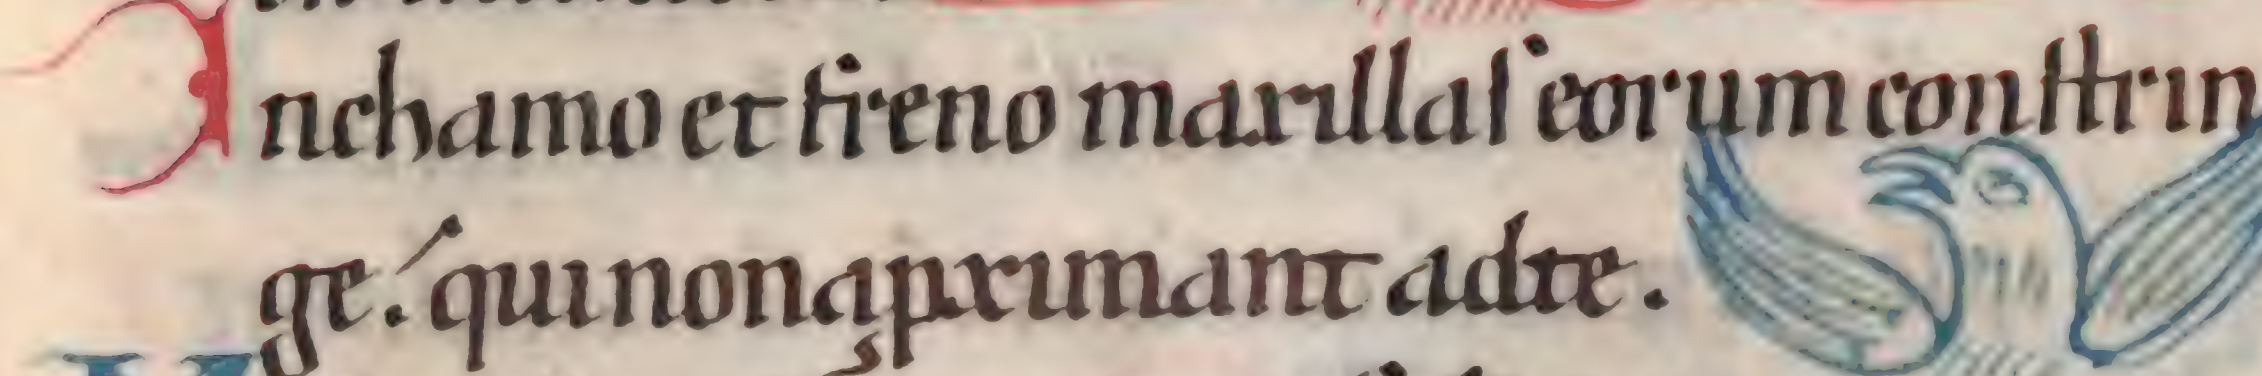 In chamo et freno maxillas eorum constrin
ge. qui non apximant ad te.